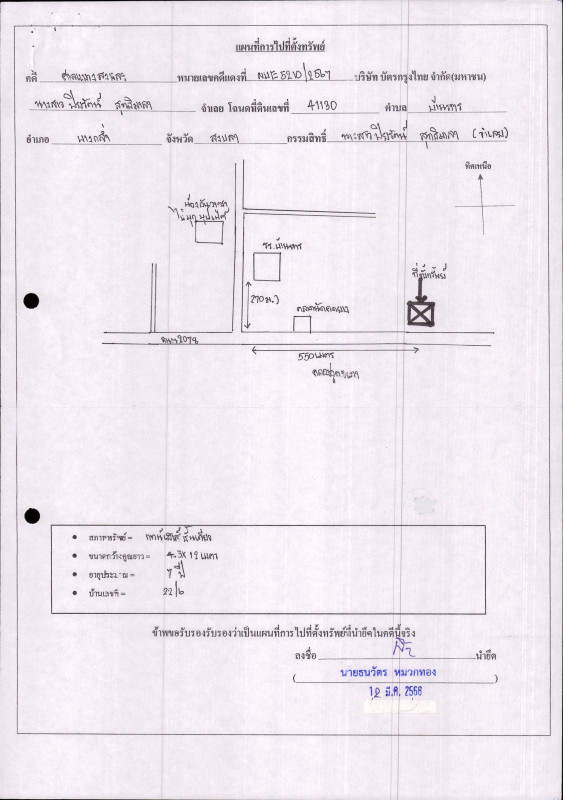 แผนที่การไปที่ตั้งทรัพย์
คดี ศาลแขวงสงขลา หมายเลขคดีแดงที่ ผบE 5210/2567 บริษัท บัตรกรุงไทย จำกัด(มหาชน)
นางสาว ปิยรัตน์ สุทธิมาลา จำเลย โฉนดที่ดินเลขที่ 41130 ตำบล บ้านหาร
อำเภอ บางกล่ำ จังหวัด สงขลา กรรมสิทธิ์ นางสาว ปิยรัตน์ สุทธิมาลา (จำเลย)
ทิศเหนือ
รร.บ้านหาร
ที่ตั้งทรัพย์
270 ม.
ตลาดนัด
ถนน 2078
550 เมตร
สภาพทรัพย์ = ทาวน์เฮ้าส์ ชั้นเดียว
ขนาดกว้างคูณยาว = 4.3x12 เมตร
อายุประมาณ = 7 ปี
บ้านเลขที่ = 22/6
ข้าพขอรับรองรับรองว่าเป็นแผนที่การไปที่ตั้งทรัพย์ที่นำยึดในคดีนี้จริง
ลงชื่อ นำยึด
( นายธนวัตร หมวกทอง )
12 มี.ค. 2568